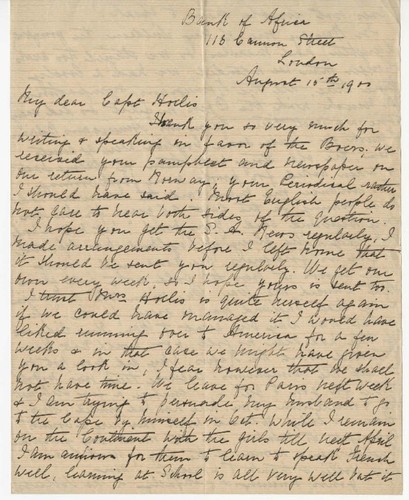 Bank of Africa
113 Cannon Street
London
August 15th 1900
My dear Capt Hollis
Thank you so very much for
writing & speaking in favor of the Boers. We
received your pamphlet and newspaper on
our return from Norway, your Periodical rather
I should have said. Most English people do
not care to hear both sides of the question.
I hope you get the S. A. News regularly, I
made arrangements before I left home that
it should be sent you regularly. We get our
own every week, so I hope yours is sent too.
I trust Mrs Hollis is quite herself again
if we could have managed it I would have
liked running over to America for a few
weeks & in that case we might have given
you a look in, I fear however that we shall
not have time. We leave for Paris next week
& I am trying to persuade my husband to go
to the Cape by himself in Oct. while I remain
on the Continent with the girls till next April
I am anxious for them to learn to speak French
well, learning at School is all very well but it